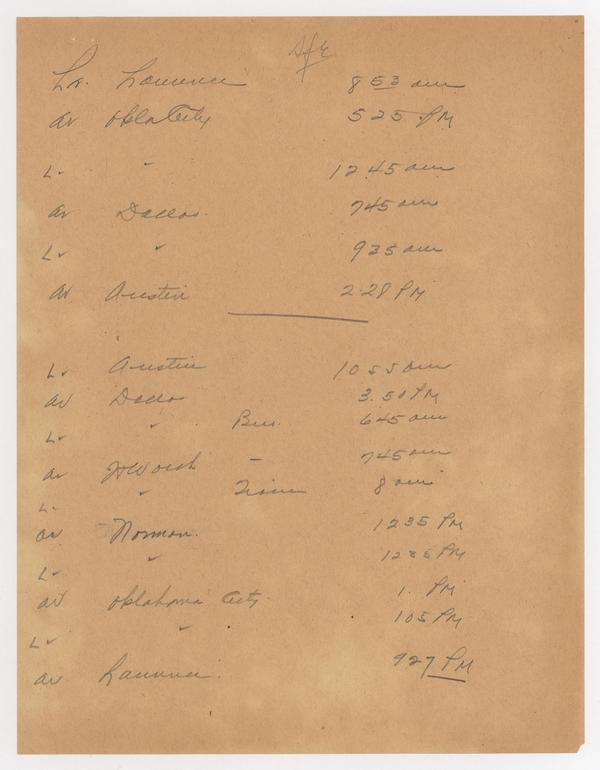 SFE
Lv. Lawrence 8 53 am
ar Okla City 5 25 PM
Lv " 12 45 am
ar Dallas. 745 am
Lv " 935 am
ar Austin 2.28 PM
Lv Austin 10 55 am
ar Dallas 3.50 PM
Lv " Bus. 645 am
ar Ft Worth – 745 am
Lv " Train 8 am
ar Norman. 1235 PM
Lv " 1236 PM
ar Oklahoma City. 1. PM
Lv " 105 PM
ar Lawrence. 927 PM